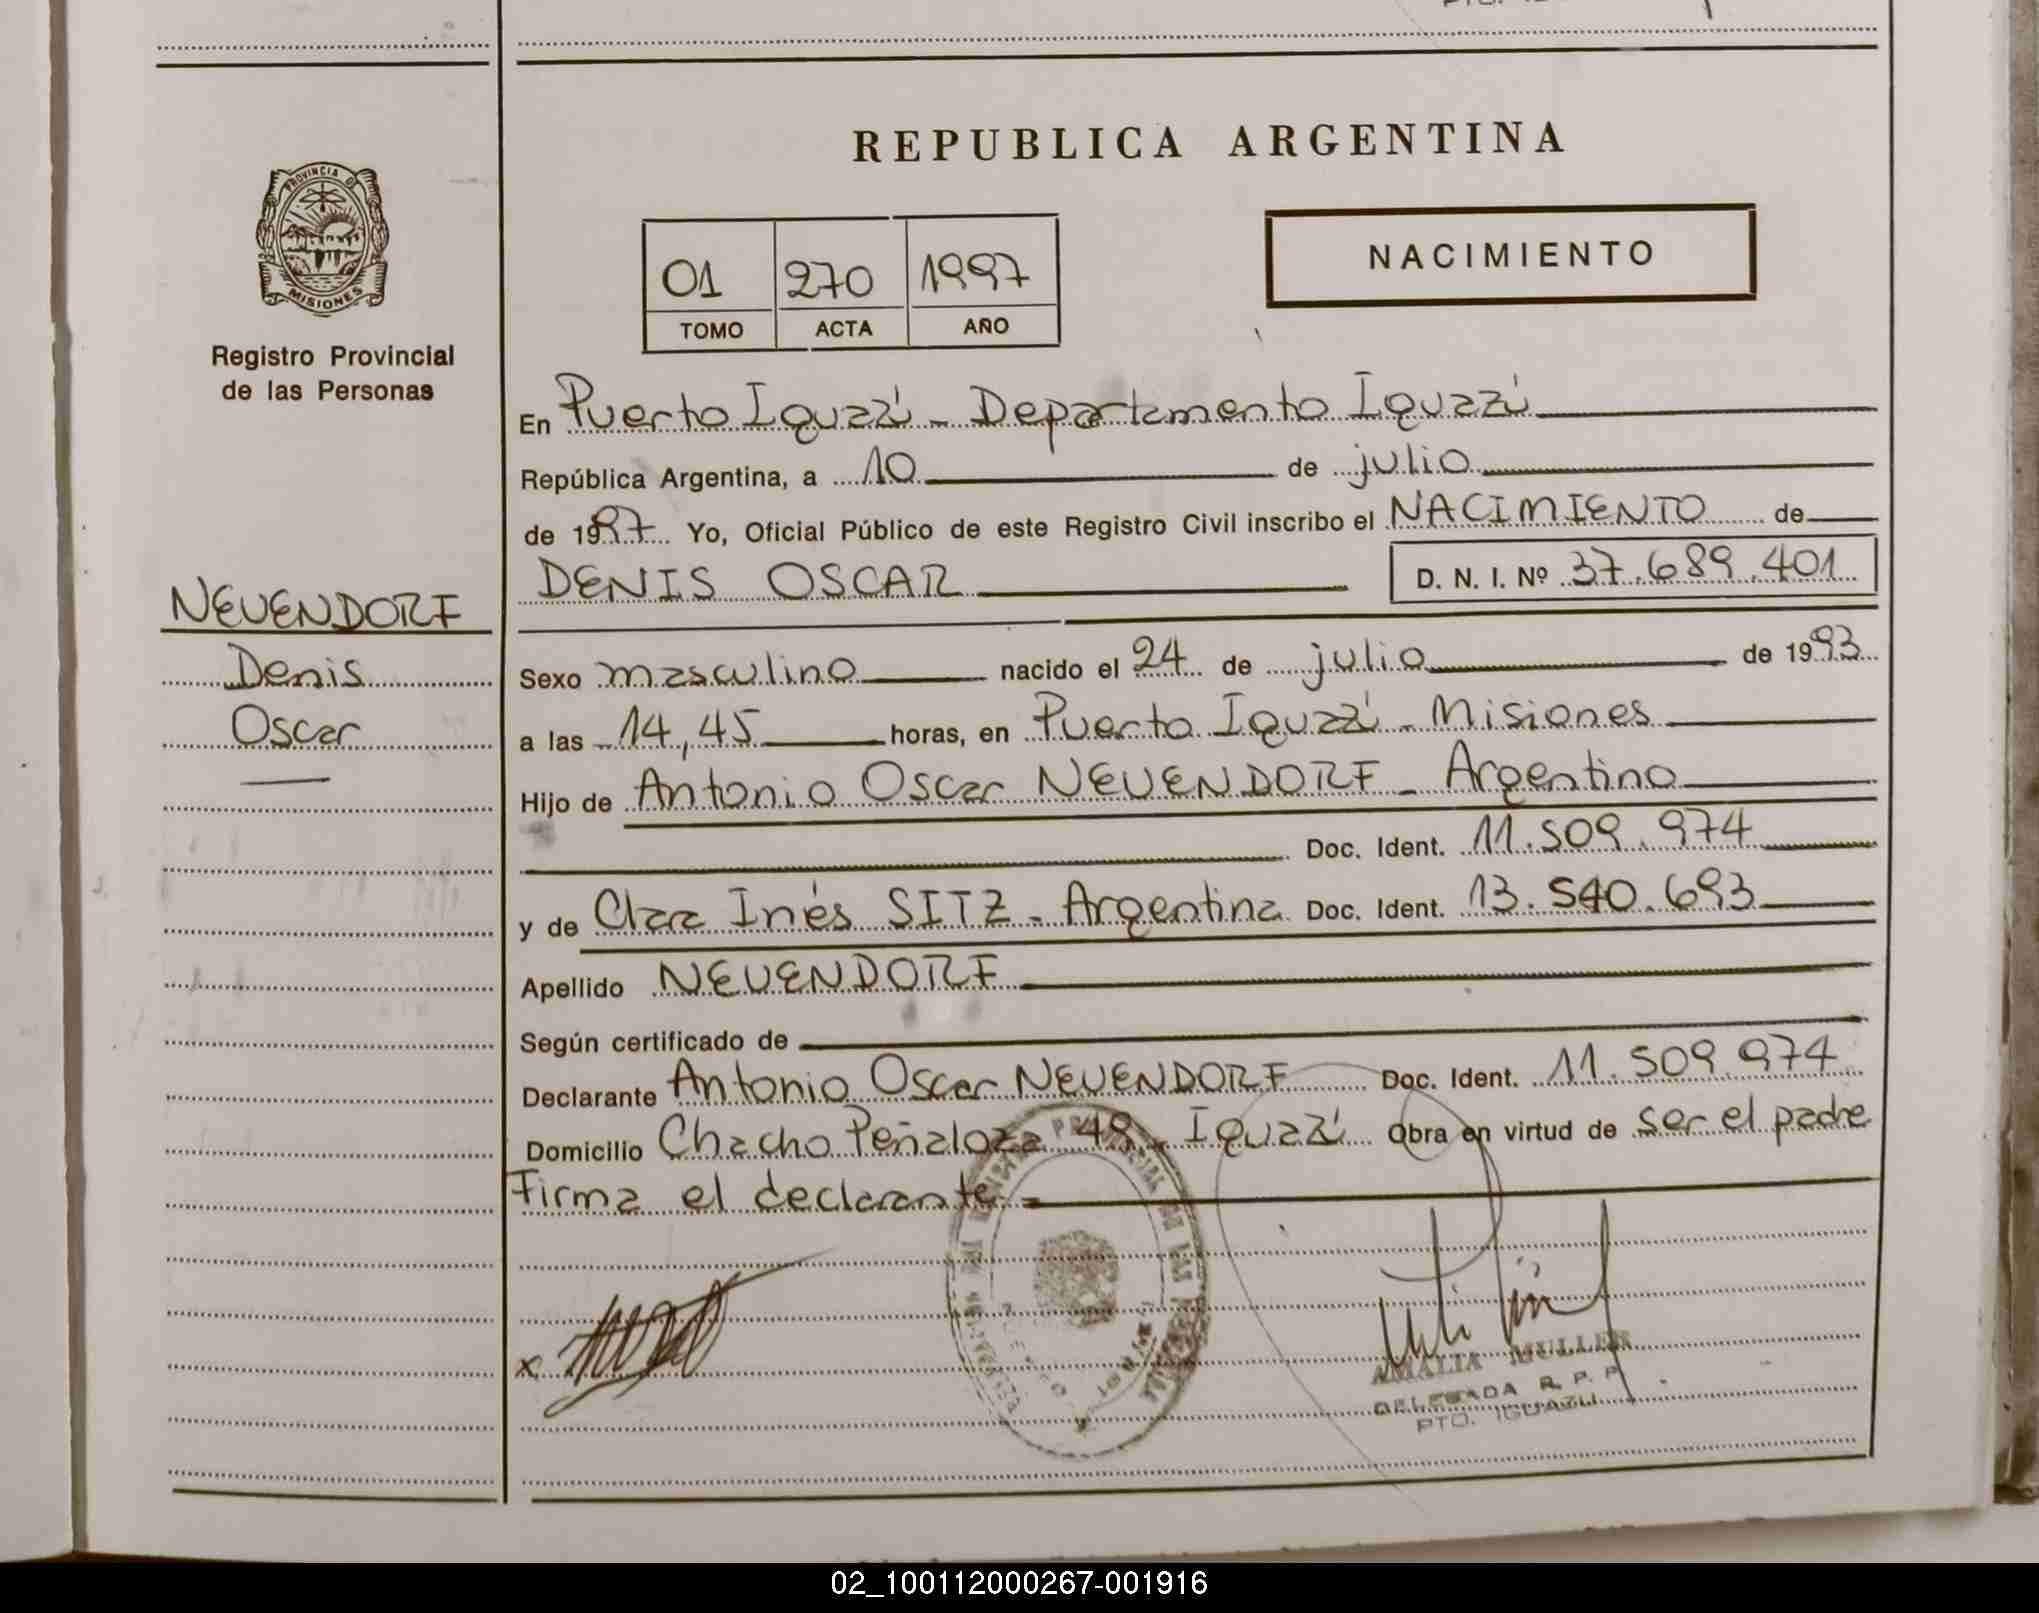 REPUBLICA ARGENTINA
PROVINCIA DE
MISIONES
Registro Provincial
de las Personas
01 270 1997
TOMO ACTA AÑO
NACIMIENTO
En Puerto Iguazú - Departamento Iguazú
República Argentina, a 10 de julio
de 1997 Yo, Oficial Público de este Registro Civil inscribo el NACIMIENTO de
DENIS OSCAR D. N. I. Nº 37.689.401
NEUENDORF
Denis
Oscar
Sexo masculino nacido el 24 de julio de 1993
a las 14,45 horas, en Puerto Iguazú - Misiones
Hijo de Antonio Oscar NEUENDORF - Argentino
Doc. Ident. 11.509.974
y de Clara Inés SITZ - Argentina Doc. Ident. 13.540.693
Apellido NEUENDORF
Según certificado de
Declarante Antonio Oscar NEUENDORF Doc. Ident. 11.509.974
Domicilio Chacho Peñaloza 48 - Iguazú Obra en virtud de ser el padre
Firma el declarante -
x
AMALIA MULLER
DELEGADA R. P. P.
PTO. IGUAZU
02_100112000267-001916